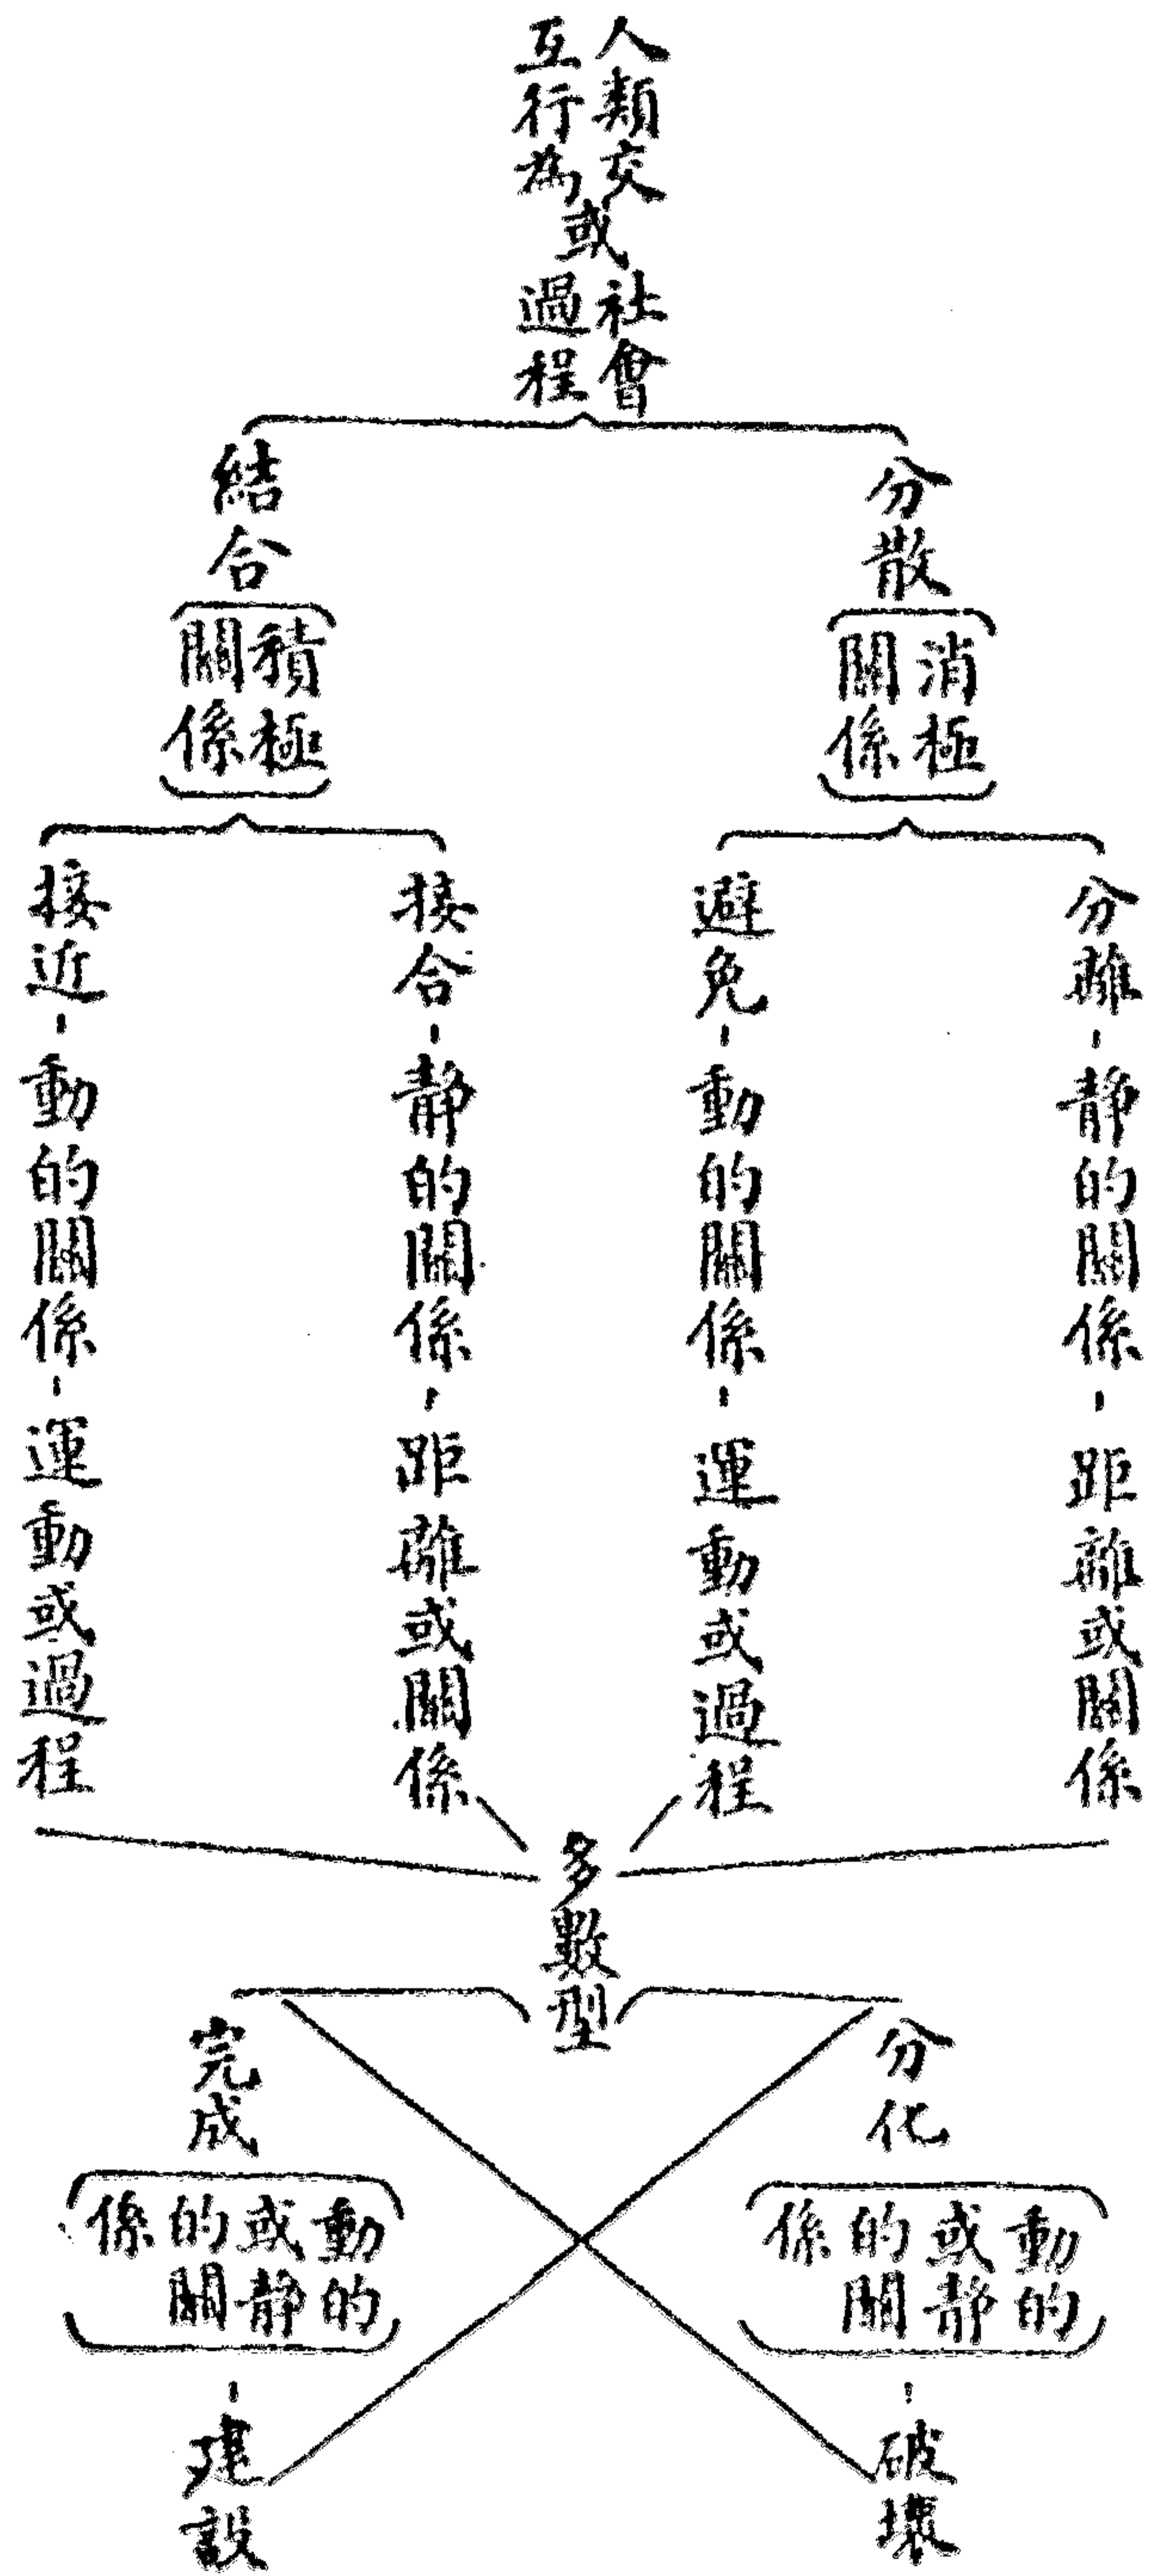 人類交互行為
或
社會過程
分散
(消極關係)
結合
(積極關係)
分離-靜的關係-距離或關係
避免-動的關係-運動或過程
接合-靜的關係-距離或關係
接近-動的關係-運動或過程
多數型
分化
(動的或靜的關係)
-破壞
完成
(動的或靜的關係)
-建設